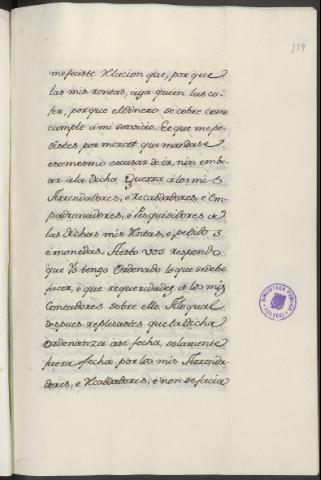 259
me feciste Relacion que, por que
las mis rentas, aya quien las co-
fer, por que el Dinero se cobre como
cumple á mi servicio. E e que me pe-
distes por merced que mandase
eso mesmo escusar de ir, nin embi-
ar á la dicha Guerra á los mis
Arrendadores, e Recabdadores, e Em-
padronadores, e Pesquisidores de
las Dichas mis Rentas, e pedidos
e monedas. A esto vos respondo
que Yo tengo Ordenado lo que se debe
facer, e que requeridades á los mis
Contadores sobre ello. A lo qual
despues replicastes que la dicha
Ordenanza á se fecha, solamente
fuera fecha por los mis Arrenda-
dores, e Recabdadores, e non se facia
BIBLIOTECA PUBLICA
TOLEDO